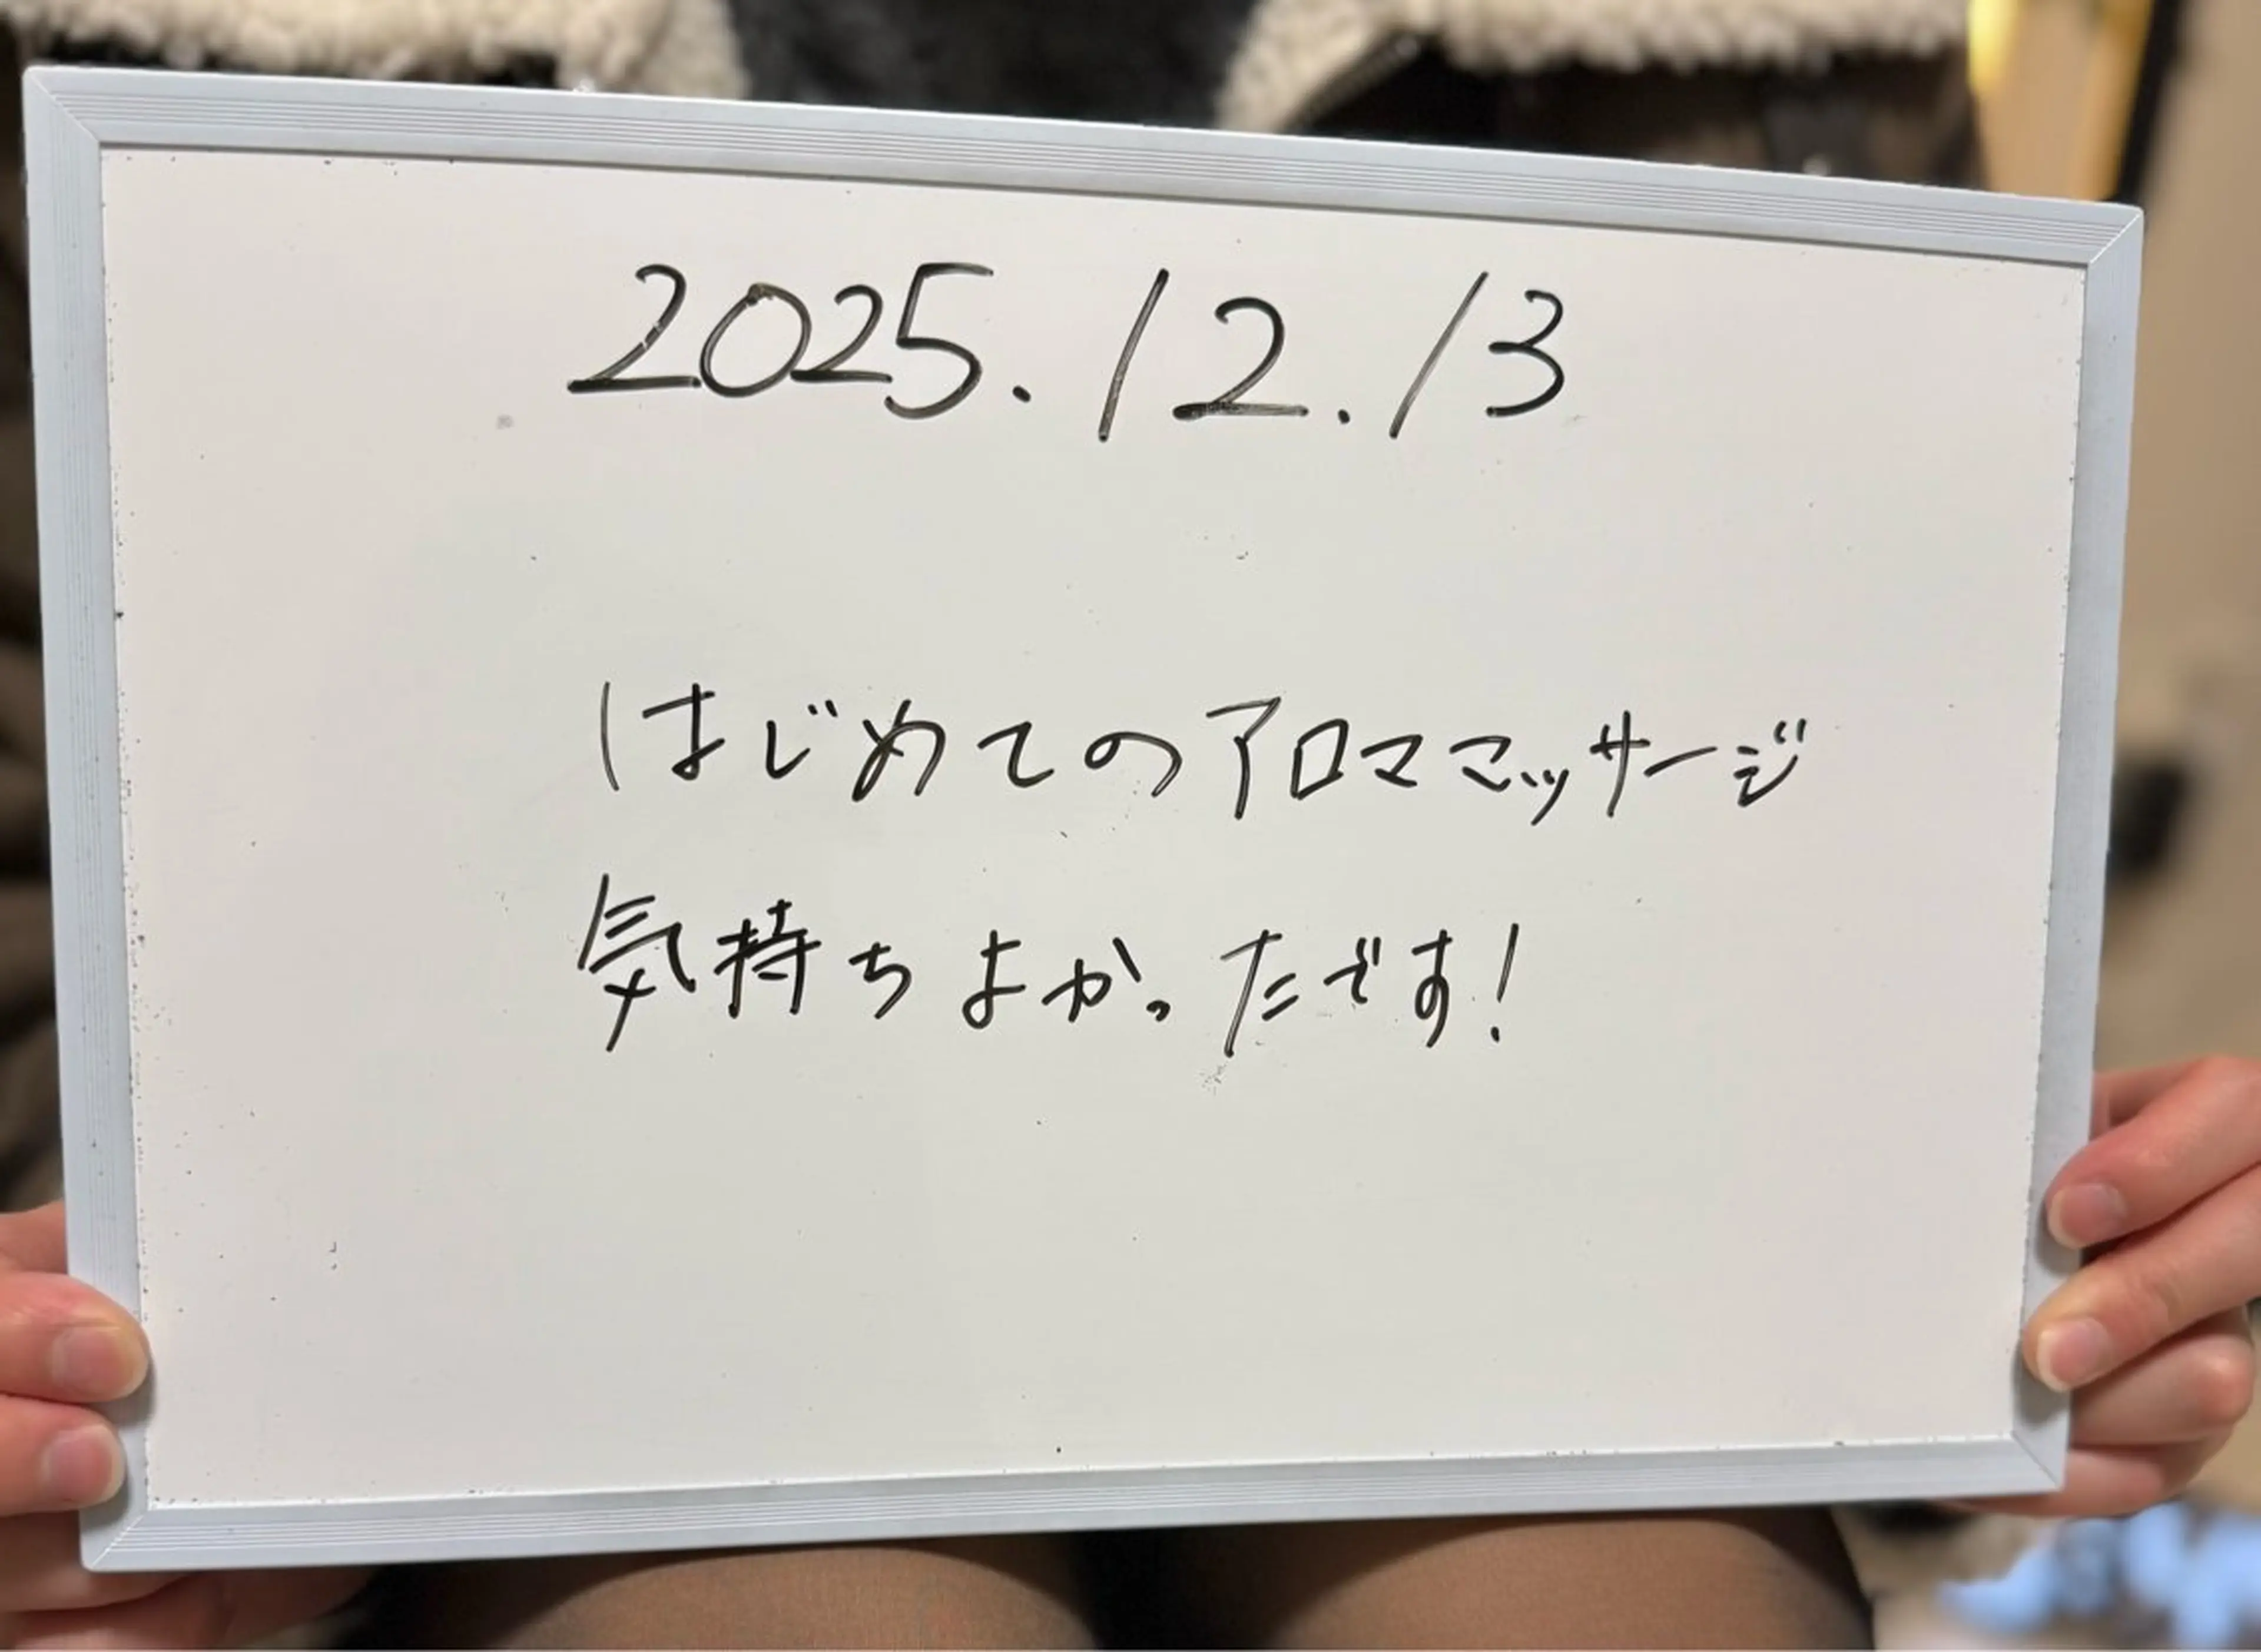 2025.12.13
はじめてのアロママッサージ
気持ちよかったです!